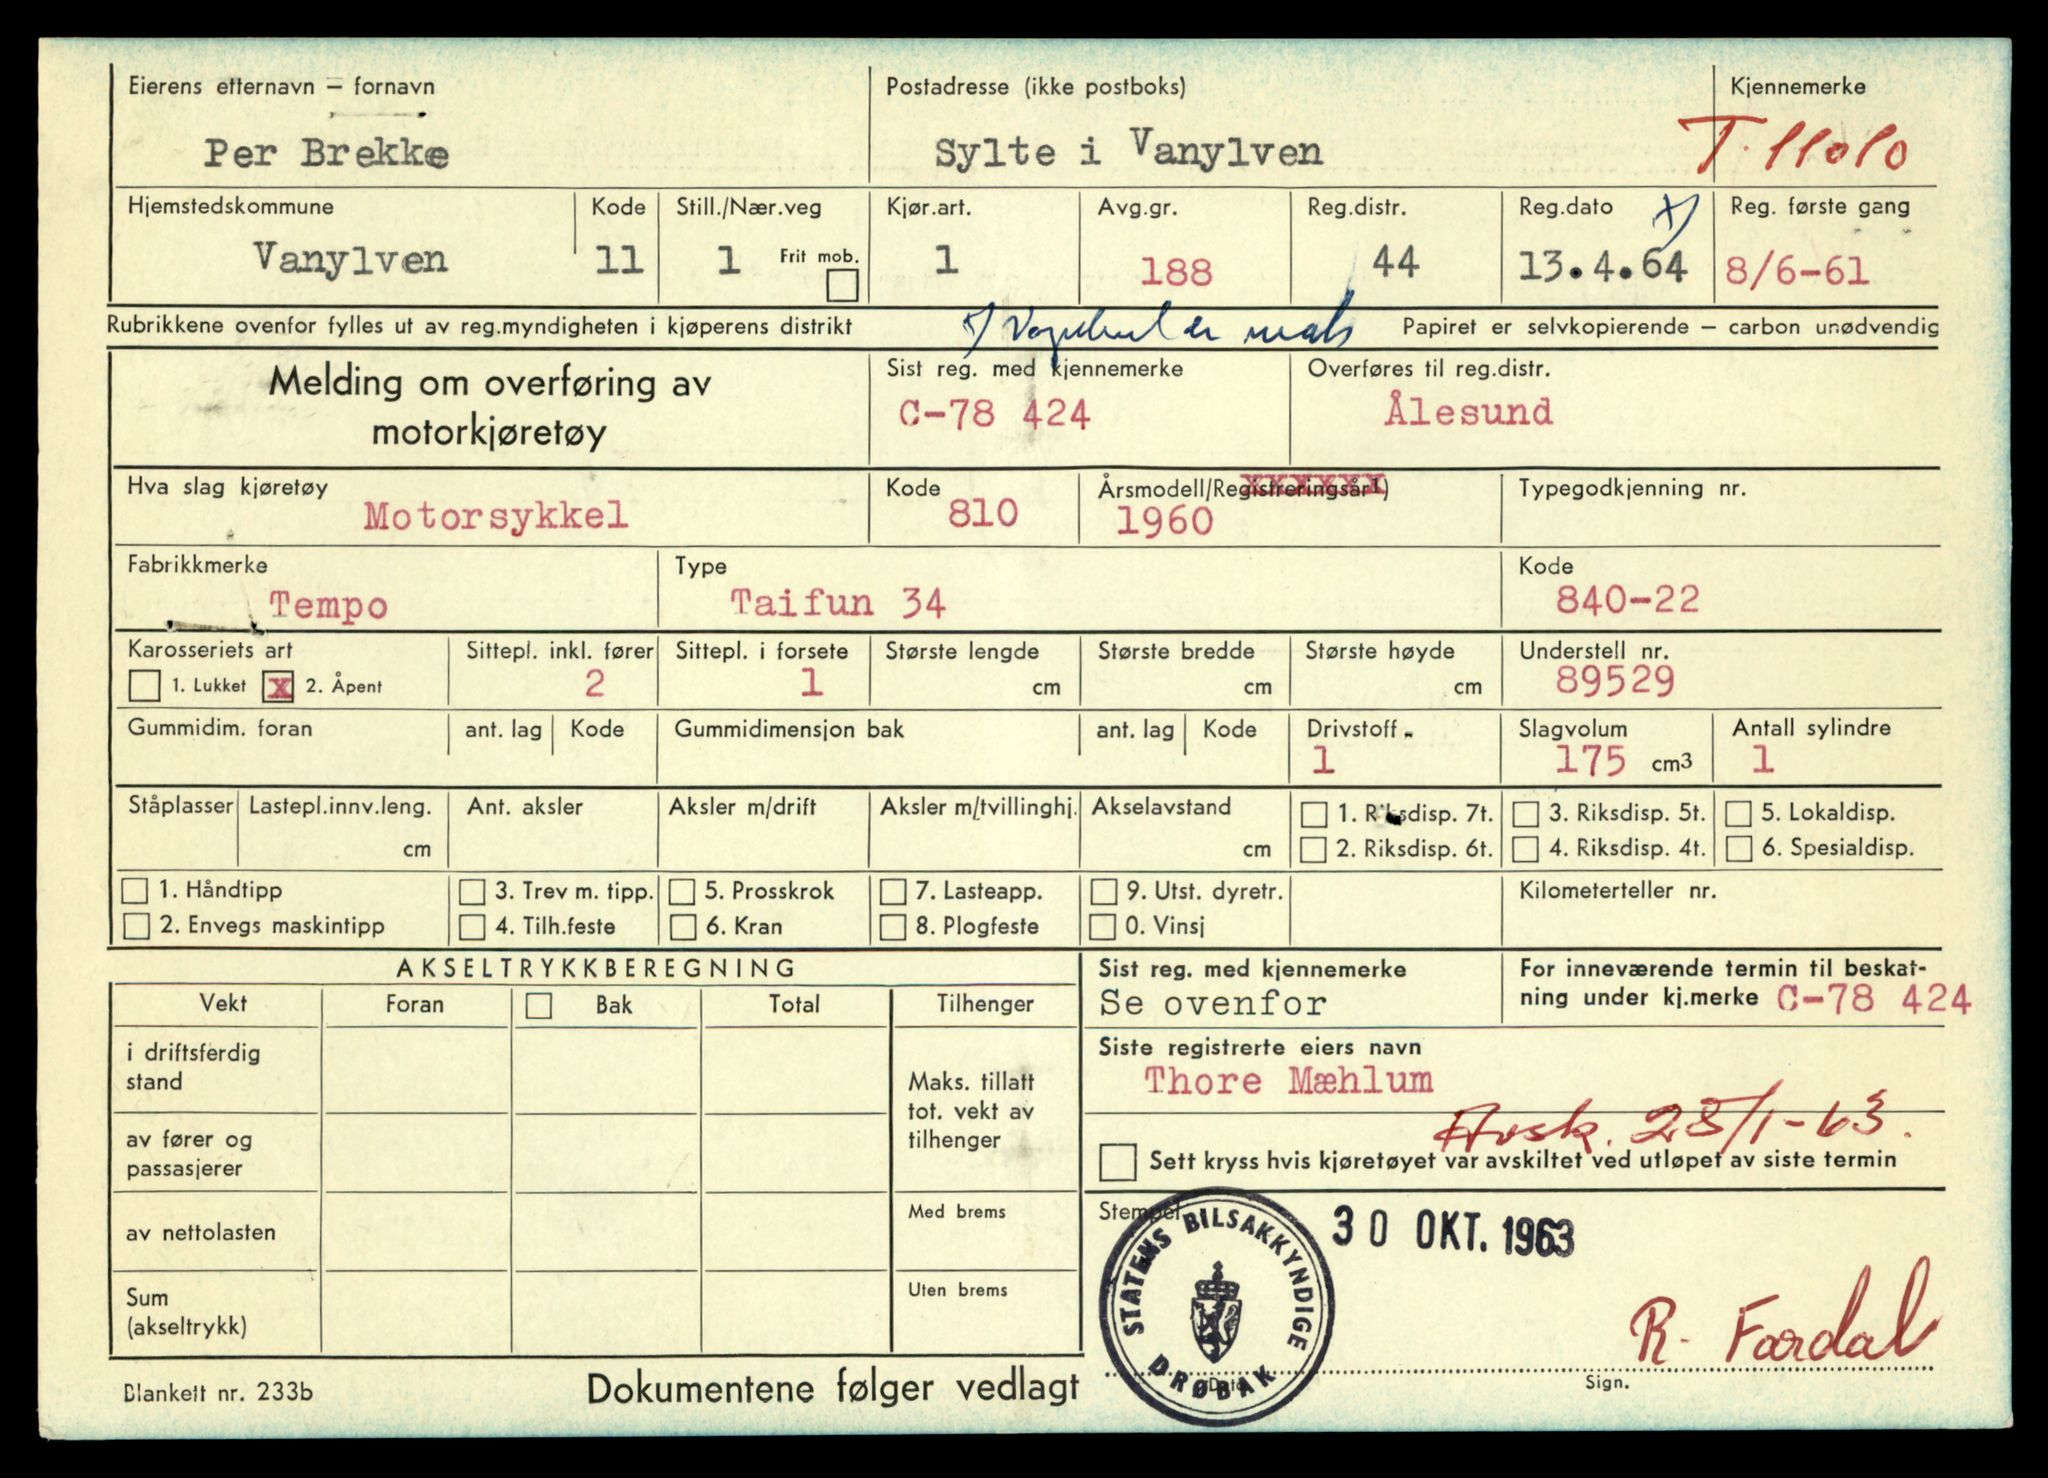 Eierens etternavn – fornavn
Per Brekke
Postadresse (ikke postboks)
Sylte i Vanylven
Kjennemerke
T. 11010
Hjemstedskommune
Vanylven
Kode
11
Still./Nær.veg
1
Frit mob.
Kjør.art.
1
Avg.gr.
188
Reg.distr.
44
Reg.dato x)
13.4.64
Reg. første gang
8/6-61
Rubrikkene ovenfor fylles ut av reg.myndigheten i kjøperens distrikt
Papiret er selvkopierende – carbon unødvendig
Melding om overføring av
motorkjøretøy
Sist reg. med kjennemerke
C-78 424
Overføres til reg.distr.
Ålesund
Hva slag kjøretøy
Motorsykkel
Kode
810
Årsmodell/Registreringsår1)
1960
Typegodkjenning nr.
Fabrikkmerke
Tempo
Type
Taifun 34
Kode
840-22
Karosseriets art
1. Lukket x 2. Åpent
Sittepl. inkl. fører
2
Sittepl. i forsete
1
Største lengde
cm
Største bredde
cm
Største høyde
cm
Understell nr.
89529
Gummidim. foran
ant. lag
Kode
Gummidimensjon bak
ant. lag
Kode
Drivstoff
1
Slagvolum
175 cm3
Antall sylindre
1
Ståplasser
Lastepl.innv.leng.
cm
Ant. aksler
Aksler m/drift
Aksler m/tvillinghj.
Akselavstand
cm
1. Riksdisp. 7t.
2. Riksdisp. 6t.
3. Riksdisp. 5t.
4. Riksdisp. 4t.
5. Lokaldisp.
6. Spesialdisp.
1. Håndtipp
2. Envegs maskintipp
3. Trev m. tipp.
4. Tilh.feste
5. Prosskrok
6. Kran
7. Lasteapp.
8. Plogfeste
9. Utst. dyretr.
0. Vinsj
Kilometerteller nr.
AKSELTRYKKBEREGNING
Vekt
Foran
Bak
Total
Tilhenger
i driftsferdig
stand
av fører og
passasjerer
av nettolasten
Sum
(akseltrykk)
Maks. tillatt
tot. vekt av
tilhenger
Med brems
Uten brems
Sist reg. med kjennemerke
Se ovenfor
For inneværende termin til beskat-
ning under kj.merke C-78 424
Siste registrerte eiers navn
Thore Mæhlum
Avsk. 28/1-63.
Sett kryss hvis kjøretøyet var avskiltet ved utløpet av siste termin
Stempel
STATENS BILSAKKYNDIGE
DRØBAK
30 OKT. 1963
R. Fardal
Dato
Sign.
Blankett nr. 233b
Dokumentene følger vedlagt